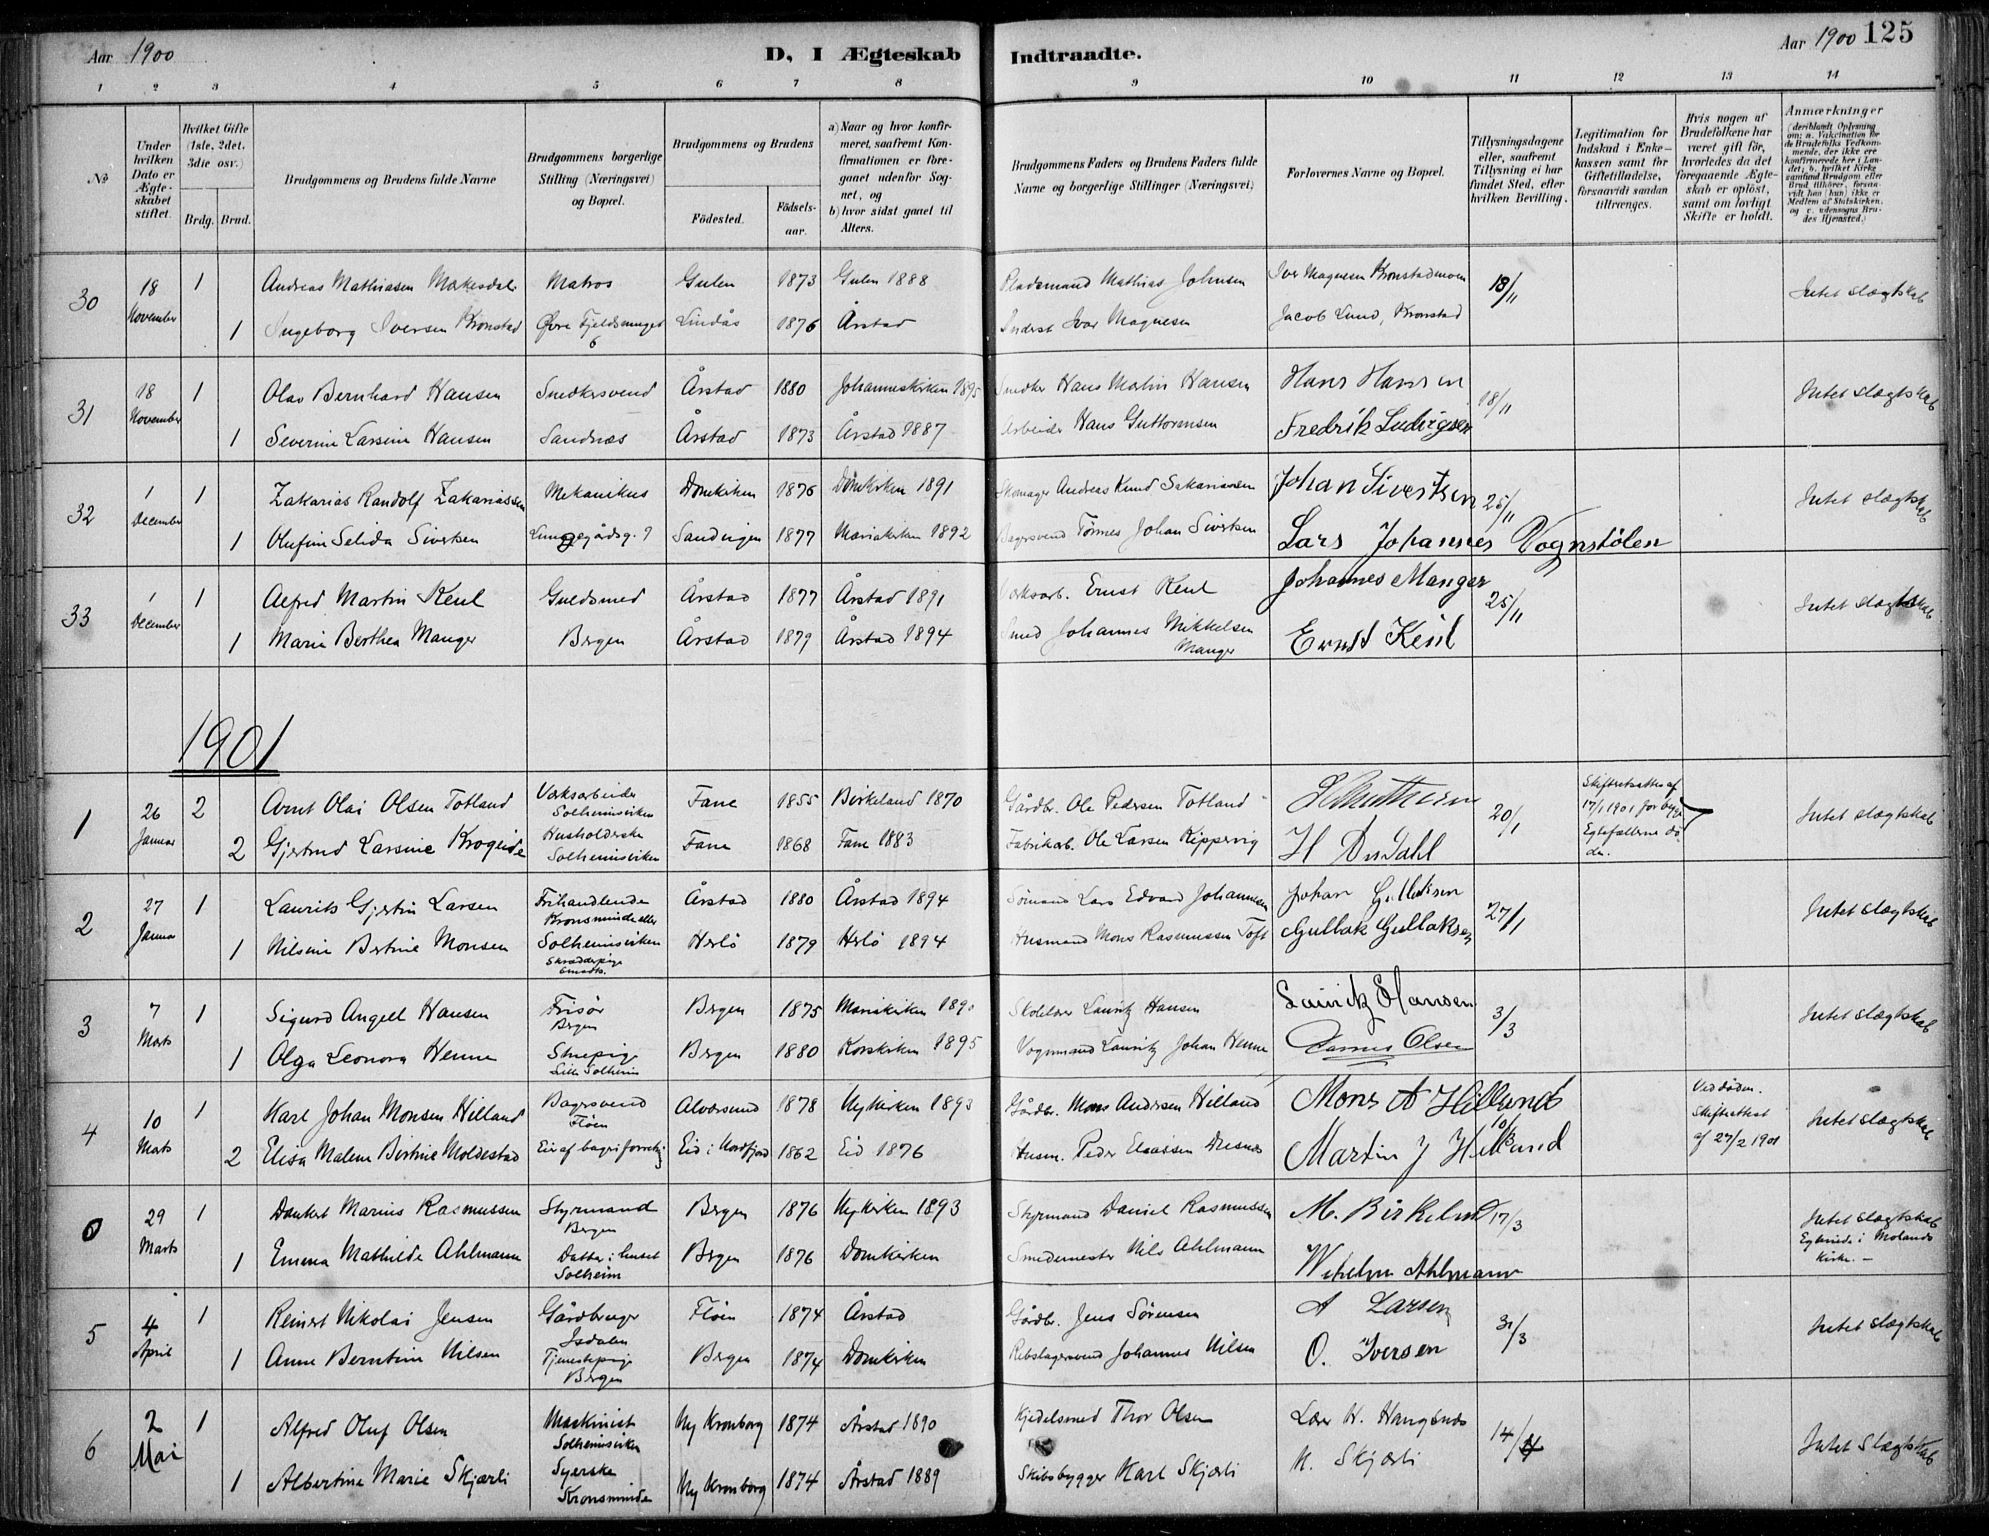 Aar 1900 D, I Ægteskab Indtraadte. Aar 1900 125
1 2 3 4 5 6 7 8 9 10 11 12 13 14
No
Under hvilken Dato er Ægteskabet stiftet.
Hvilket Gifte (1ste, 2det. 3die osv.)
Brdg. Brud.
Brudgommens og Brudens fulde Navne
Brudgommens borgerlige Stilling (Næringsvei) og Bopæl.
Brudgommens og Brudens
Födested. Födselsaar.
a) Naar og hvor konfirmeret, saafremt Konfirmationen er foregaaet udenfor Sognet, og
b) hvor sidst gaaet til Alters.
Brudgommens Faders og Brudens Faders fulde Navne og borgerlige Stillinger (Næringsvei)
Forlovernes Navne og Bopæl.
Tillysningsdagene eller, saafremt Tillysning ei har fundet Sted, efter hvilken Bevilling.
Legitimation for Indskud i Enkekassen samt for Giftetilladelse, forsaavidt saadan tiltrænges.
Hvis nogen af Brudefolkene har været gift för, hvorledes da det foregaaende Ægteskab er oplöst, samt om lovligt Skifte er holdt.
Anmærkninger
30 18 November 1 Andreas Mathiasen Matros Gulen 1873 Gulen 1888 Pladsmand Mathias Johnsen Iver Magnesen Kronstadmoen 18/11 Intet slægtskab
1 Ingeborg Iversen Kronstad Øvre Fjeldsmuget 6 Lindås 1876 Årstad Inderst Ivar Magnesen Jacob Lund, Kronstad
31 18 November 1 Olav Bernhard Hansen Snedkersvend Årstad 1880 Johanneskirken 1895 Snedker Hans Martin Hansen Hans Hansen 18/11 Intet slægtskab
1 Severine Larsine Hansen Sandnæs Årstad 1873 Årstad 1887 Arbeider Hans Guttormsen Fredrik Ludvigsen
32 1 December 1 Zakarias Randolf Zakariassen Mekanikus Domkirken 1876 Domkirken 1891 Skomager Andreas Knud Sakariassen Johan Sivertsen 25/11 Intet slægtskab
1 Olufine Selida Sivertsen Lungegårdsg. 9 Sandvigen 1877 Mariakirken 1892 Bagersvend Tønnes Johan Sivertsen Lars Johannes Vognstølen
33 1 December 1 Alfred Martin Keul Guldsmed Årstad 1877 Årstad 1891 Værksarb. Ernst Keul Johannes Manger 25/11 Intet slægtskab
1 Marie Berthea Manger Bergen Årstad 1879 Årstad 1894 Smed Johannes Mikkelsen Manger Ernst Keul
1901
1 26 Januar 2 Arnt Olai Olsen Totland Værksarbeider Solheimsviken Fane 1855 Birkeland 1870 Gårdbr. Ole Pedersen Totland 20/1 Skifteretsattes af 17/1 1901 for begge Egtefællerne døde. Intet slægtskab
2 Gjertrud Larsine Krogeide Husholderske Solheimsviken Fane 1868 Fane 1883 Fabrikarb. Ole Larsen Kippervig
2 27 Januar 1 Laurits Gjertin Larsen Frihandlende Kronsminde Årstad 1880 Årstad 1894 Sømand Lars Edvard Johannesen Johan Gullaksen 27/1 Intet slægtskab
1 Nilsine Bertine Monsen Solheimsviken Herlö 1879 Herlö 1894 Husmand Mons Rasmussen Toft Gullak Gullaksen
3 7 Marts 1 Sigurd Angell Hansen Frisør Bergen Bergen 1875 Mariakirken Skolelærer Lauritz Hansen Lauritz Hansen 3/3 Intet slægtskab
1 Olga Leonora Henne Stuepige Lille Solheim Bergen 1880 Korskirken 1895 Vognmand Lauritz Johan Henne Olsen
4 10 Marts 1 Karl Johan Monsen Hilland Bagersvend Fløen Alversund 1878 Nykirken 1893 Gårdbr. Mons Andersen Hilland Mons A Hilland 10/3 Ved døden. Skifteattest af 27/2 1901 Intet slægtskab
2 Elisa Malene Birtine Moldestad Eier af bagerforretng Eid i Nordfjord 1862 Eid 1876 Husm. Peder Eliassen Martin J Hilland
29 Marts 1 Dankert Marius Rasmussen Styrmand Bergen Bergen 1876 Nykirken 1893 Styrmand Daniel Rasmussen M. Birkeland 17/3 Intet slægtskab Egteviede i Molands Kirke. —
1 Emma Mathilde Ahlmann Datter i huset Solheim Bergen 1876 Domkirken Smedemester Nils Ahlmann Wilhelm Ahlmann
5 4 April 1 Reinert Nikolai Jensen Gårdbruger Isdalen Fløen 1874 Årstad Gårdbr. Jens Sørensen A Larsen 31/3 Intet slægtskab
1 Anne Berntine Nilsen Tjenestepige Bergen Bergen 1874 Domkirken Rebslagersvend Johannes Nilsen O. Iversen
6 2 Mai 1 Alfred Oluf Olsen Maskinist Solheimsviken Ny Kronborg 1874 Årstad 1890 Kjedelsmed Thor Olsen Lærer H. Haugsnæs 14/4 Intet Slægtskab
1 Albertine Marie Skjærli Syerske Kronsminde Ny Kronborg 1874 Årstad 1889 Skibsbygger Karl Skjærli K. Skjærli